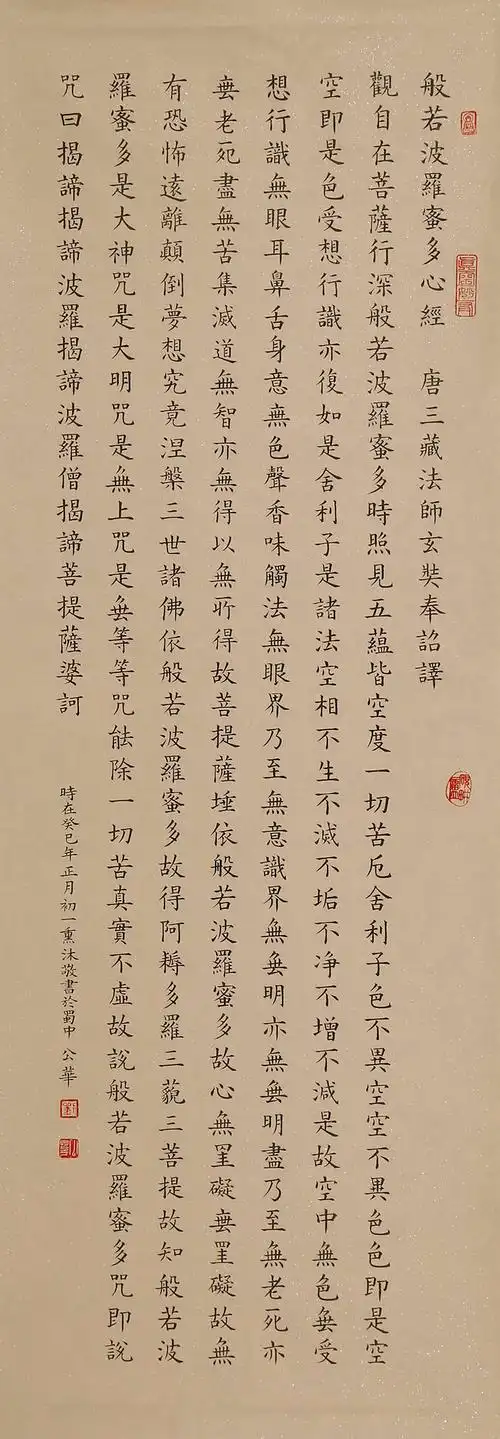 般若波羅蜜多心經 唐三藏法師玄奘奉詔譯
觀自在菩薩行深般若波羅蜜多時照見五蘊皆空度一切苦厄舍利子色不異空空不異色色即是空
空即是色受想行識亦復如是舍利子是諸法空相不生不滅不垢不净不增不減是故空中無色無受
想行識無眼耳鼻舌身意無色聲香味觸法無眼界乃至無意識界無無明亦無無明盡乃至無老死亦
無老死盡無苦集滅道無智亦無得以無所得故菩提薩埵依般若波羅蜜多故心無罣礙無罣礙故無
有恐怖遠離顛倒夢想究竟涅槃三世諸佛依般若波羅蜜多故得阿耨多羅三藐三菩提故知般若波
羅蜜多是大神咒是大明咒是無上咒是無等等咒能除一切苦真實不虛故說般若波羅蜜多咒即說
咒曰揭諦揭諦波羅揭諦波羅僧揭諦菩提薩婆訶
時在癸巳年正月初一熏沐敬書於蜀中 公華